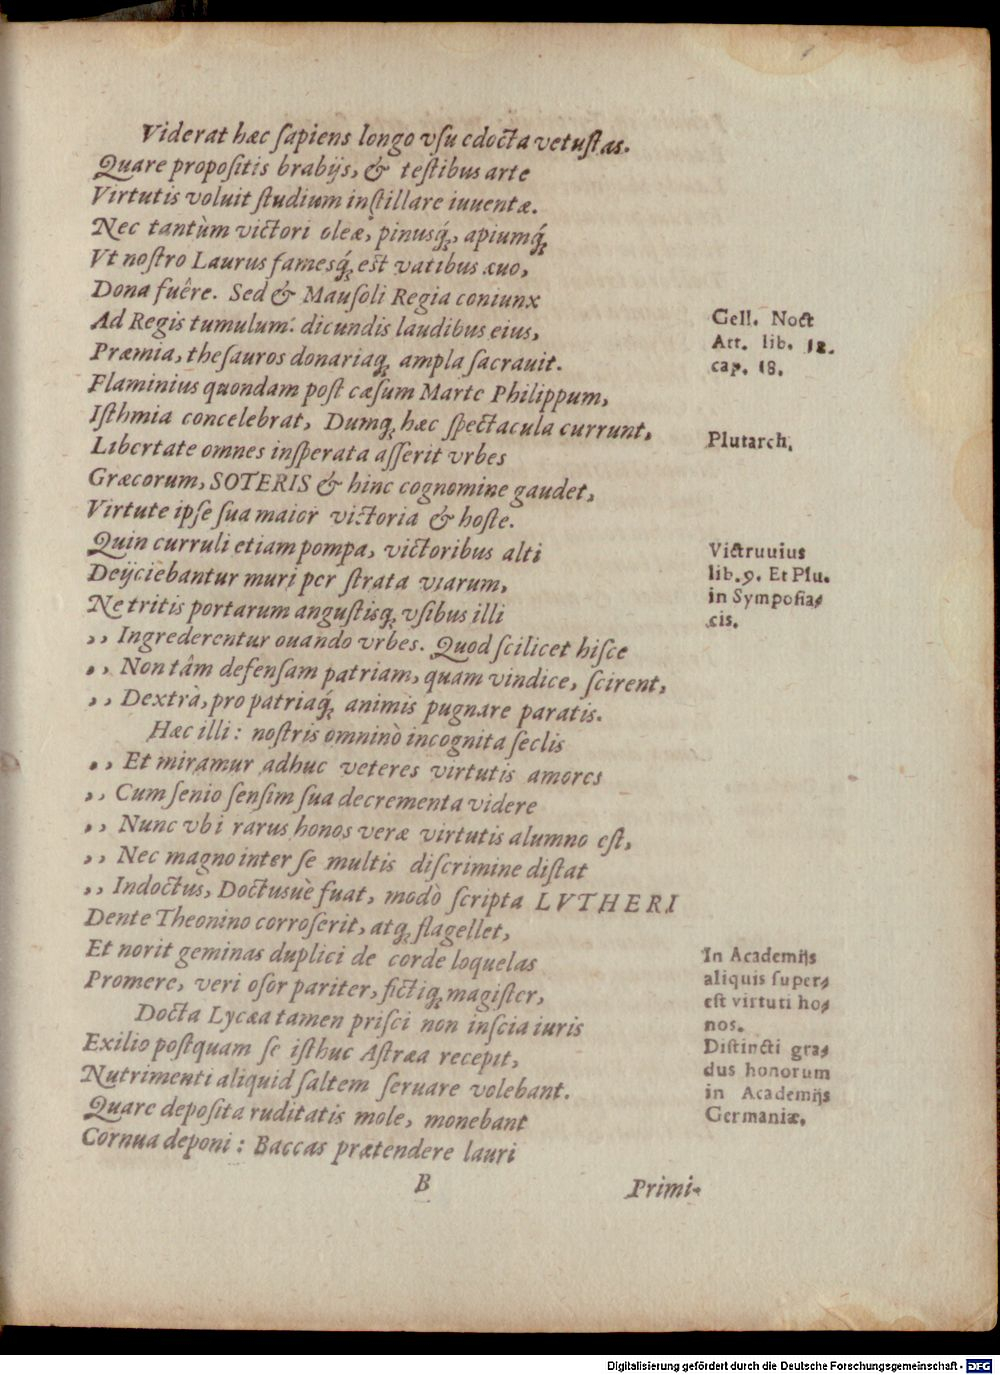 Viderat hæc ſapiens longo vſu edocta vetuſtas.
Quare propoſitis brabijs, & teſtibus arte
Virtutis voluit ſtudium inſtillare iuuentæ.
Nec tantùm victori oleæ, pinusq́, apiumq́
Vt noſtro Laurus famesq́ eſt vatibus æuo,
Dona fuêre. Sed & Mauſoli Regia coniunx
Ad Regis tumulum: dicundis laudibus eius,
Præmia, theſauros donariaq; ampla ſacrauit.
Gell. Noct
Att. lib. 18.
cap. 18.
Flaminius quondam poſt cæſum Marte Philippum,
Iſthmia concelebrat, Dumq; hæc ſpectacula currunt,
Plutarch.
Libertate omnes inſperata aſſerit vrbes
Græcorum, SOTERIS & hinc cognomine gaudet,
Virtute ipſe ſua maior victoria & hoſte.
Quin curruli etiam pompa, victoribus alti
Deijciebantur muri per ſtrata viarum,
Ne tritis portarum anguſtisq; vſibus illi
Victruuius
lib. 9. Et Plu.
in Sympoſia⸗
cis.
,, Ingrederentur ouando vrbes. Quod ſcilicet hiſce
,, Non tâm defenſam patriam, quam vindice, ſcirent,
,, Dextrà, pro patriaq́ animis pugnare paratis.
Hæc illi: noſtris omninò incognita ſeclis
,, Et miramur adhuc veteres virtutis amores
,, Cum ſenio ſenſim ſua decrementa videre
,, Nunc vbi rarus honos veræ virtutis alumno eſt,
,, Nec magno inter ſe multis diſcrimine diſtat
,, Indoctus, Doctusuè fuat, modò ſcripta LVTHERI
Dente Theonino corroſerit, atq; flagellet,
Et norit geminas duplici de corde loquelas
Promere, veri oſor pariter, fictiq; magiſter,
Docta Lycæa tamen priſci non inſcia iuris
Exilio poſtquam ſe iſthuc Aſtræa recepit,
Nutrimenti aliquid ſaltem ſeruare volebant.
Quare depoſita ruditatis mole, monebant
Cornua deponi: Baccas prætendere lauri
In Academijs
aliquis ſuper⸗
eſt virtuti ho⸗
nos.
Diſtincti gra⸗
dus honorum
in Academijs
Germaniæ.
B
Primi-
Digitalisierung gefördert durch die Deutsche Forschungsgemeinschaft - DFG